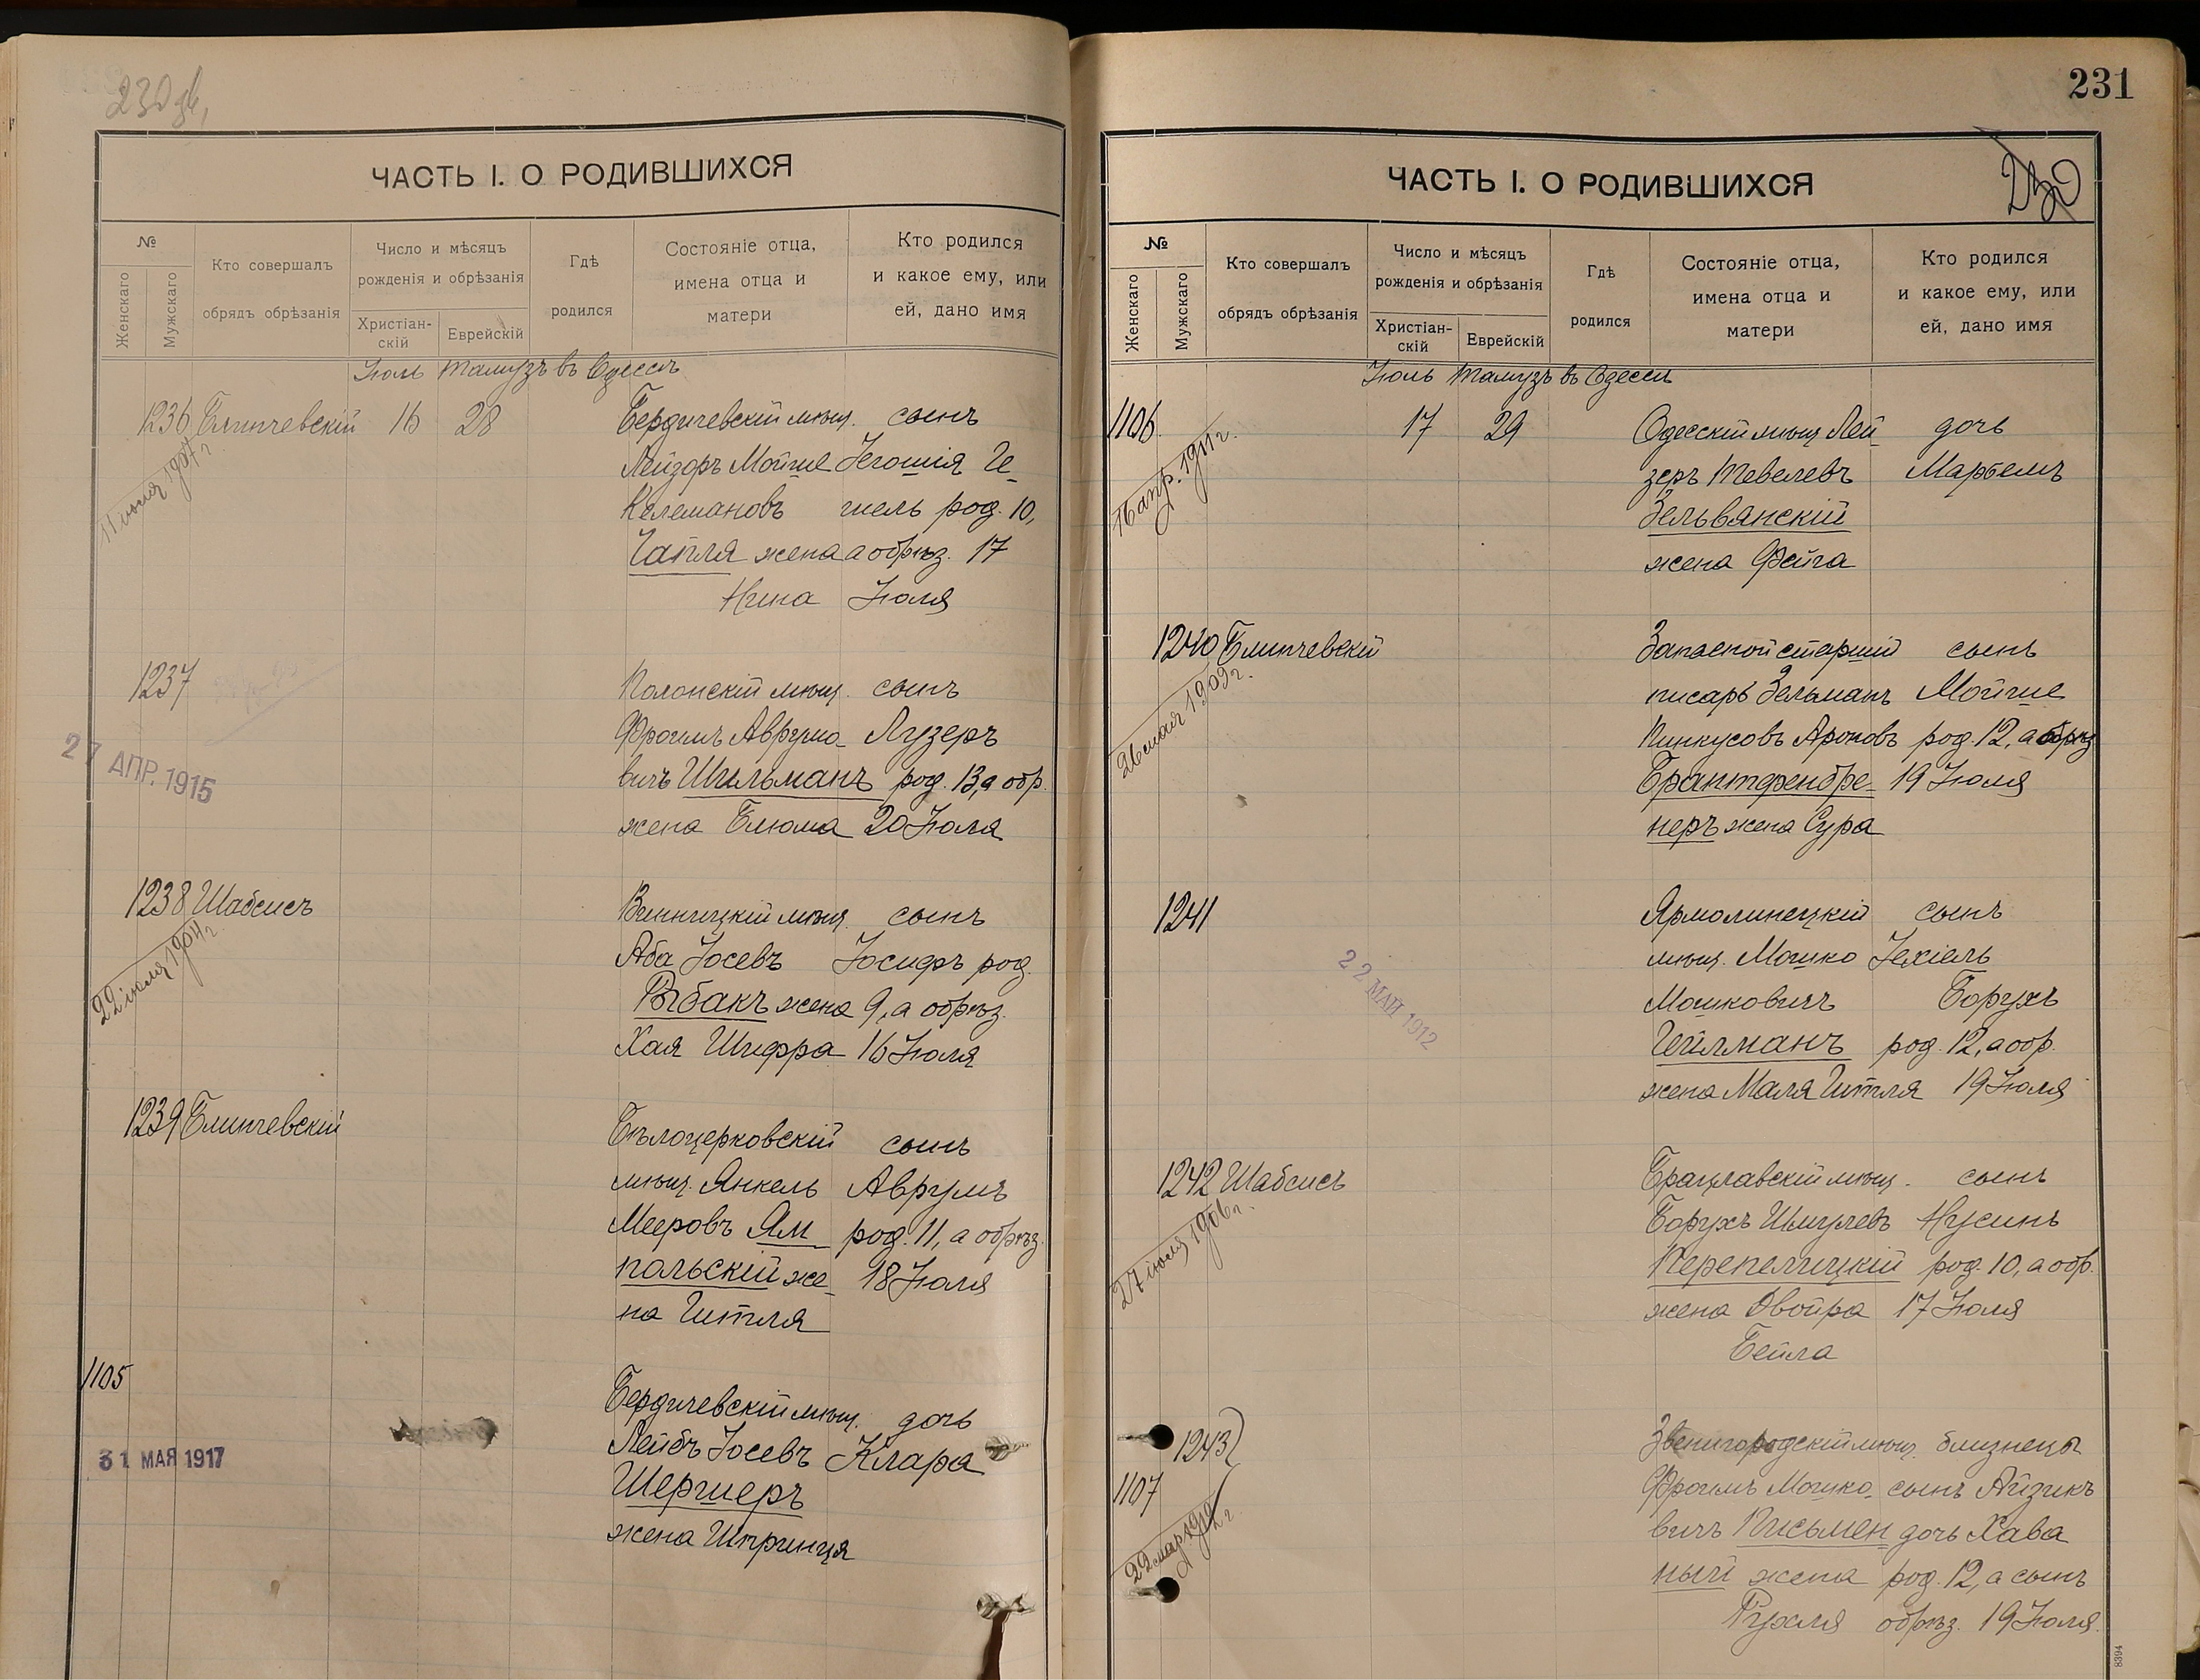 230 об,
ЧАСТЬ I. О РОДИВШИХСЯ
№
Женскаго
Мужскаго
Кто совершалъ
обрядъ обрѣзанія
Число и мѣсяцъ
рожденія и обрѣзанія
Христіан-
скій
Еврейскій
Гдѣ
родился
Состояніе отца,
имена отца и
матери
Кто родился
и какое ему, или
ей, дано имя
Іюль Тамузъ въ Одессѣ
1236 Блинчевскій 16 28 Бердичевскій мѣщ. сынъ
11 іюля 1907 г.
Лейзоръ Мойше Іегошія Ге-
Келемановъ шель род. 10,
Чапля жена а обрѣз. 17
Нина Іюля
1237
Полонскій мѣщ. сынъ
27 АПР. 1915
Фроимъ Аврумо- Лузеръ
вичъ Шильманъ род. 13, а обр.
жена Блюма 20 Іюля
1238 Шабсисъ Винницкій мѣщ. сынъ
22 іюля 1904 г.
Аба Іосевъ Іосифъ род.
Рыбакъ жена 9, а обрѣз.
Хая Шифра 16 Іюля
1239 Блинчевскій Бѣлоцерковскій сынъ
мѣщ. Янкель Аврумъ
Мееровъ Ям- род. 11, а обрѣз.
польскій же- 18 Іюля
на Гитля
1105
Бердичевскій мѣщ. дочь
31 МАЯ 1917
Лейбъ Іосевъ Клара
Шершеръ
жена Шпринця
231
ЧАСТЬ I. О РОДИВШИХСЯ
230
№
Женскаго
Мужскаго
Кто совершалъ
обрядъ обрѣзанія
Число и мѣсяцъ
рожденія и обрѣзанія
Христіан-
скій
Еврейскій
Гдѣ
родился
Состояніе отца,
имена отца и
матери
Кто родился
и какое ему, или
ей, дано имя
Іюль Тамузъ въ Одессѣ
1106 17 29 Одесскій мѣщ. Лей- дочь
16 апр. 1911 г.
зеръ Тевелевъ Марьемъ
Зельвянскій
жена Фейга
1240 Блинчевскій Запасной старшій сынъ
26 мая 1909 г.
писарь Зельманъ Мойше
Пинкусовъ Ароновъ род. 12, а обрѣз
Брантфенбре- 19 Іюля
неръ жена Сура
1241 Ярмолинецкій сынъ
22 МАЙ 1912
мѣщ. Мошко Іехіель
Мошковичъ Борухъ
Гейлманъ род. 12, а обр.
жена Маля Гитля 19 Іюля
1242 Шабсисъ Брацлавскій мѣщ. сынъ
27 іюля 1906 г.
Борухъ Шмулевъ Нусинъ
Перепелицкій род. 10, а обр.
жена Двойра 17 Іюля
Бейла
1243 Звенигородскій мѣщ. близнецы
1107
Фроимъ Мошко- сынъ Айзикъ
вичъ Письмен- дочь Хава
ный жена род. 12, а сынъ
Рухля обрѣз. 19 Іюля.
8394